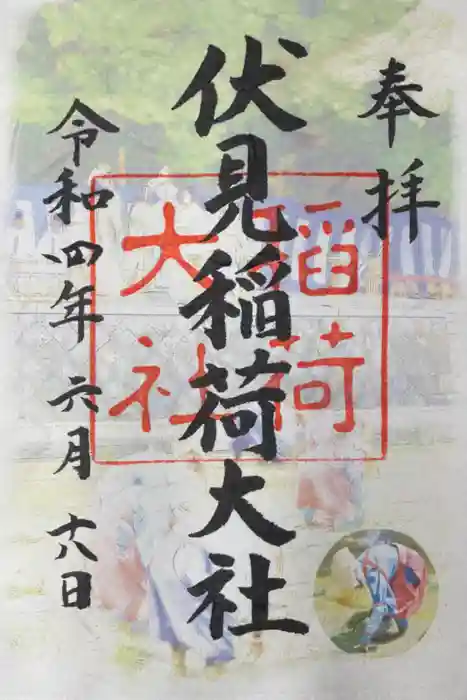 奉拝
伏見稲荷大社
稲荷
大社
令和四年六月十八日